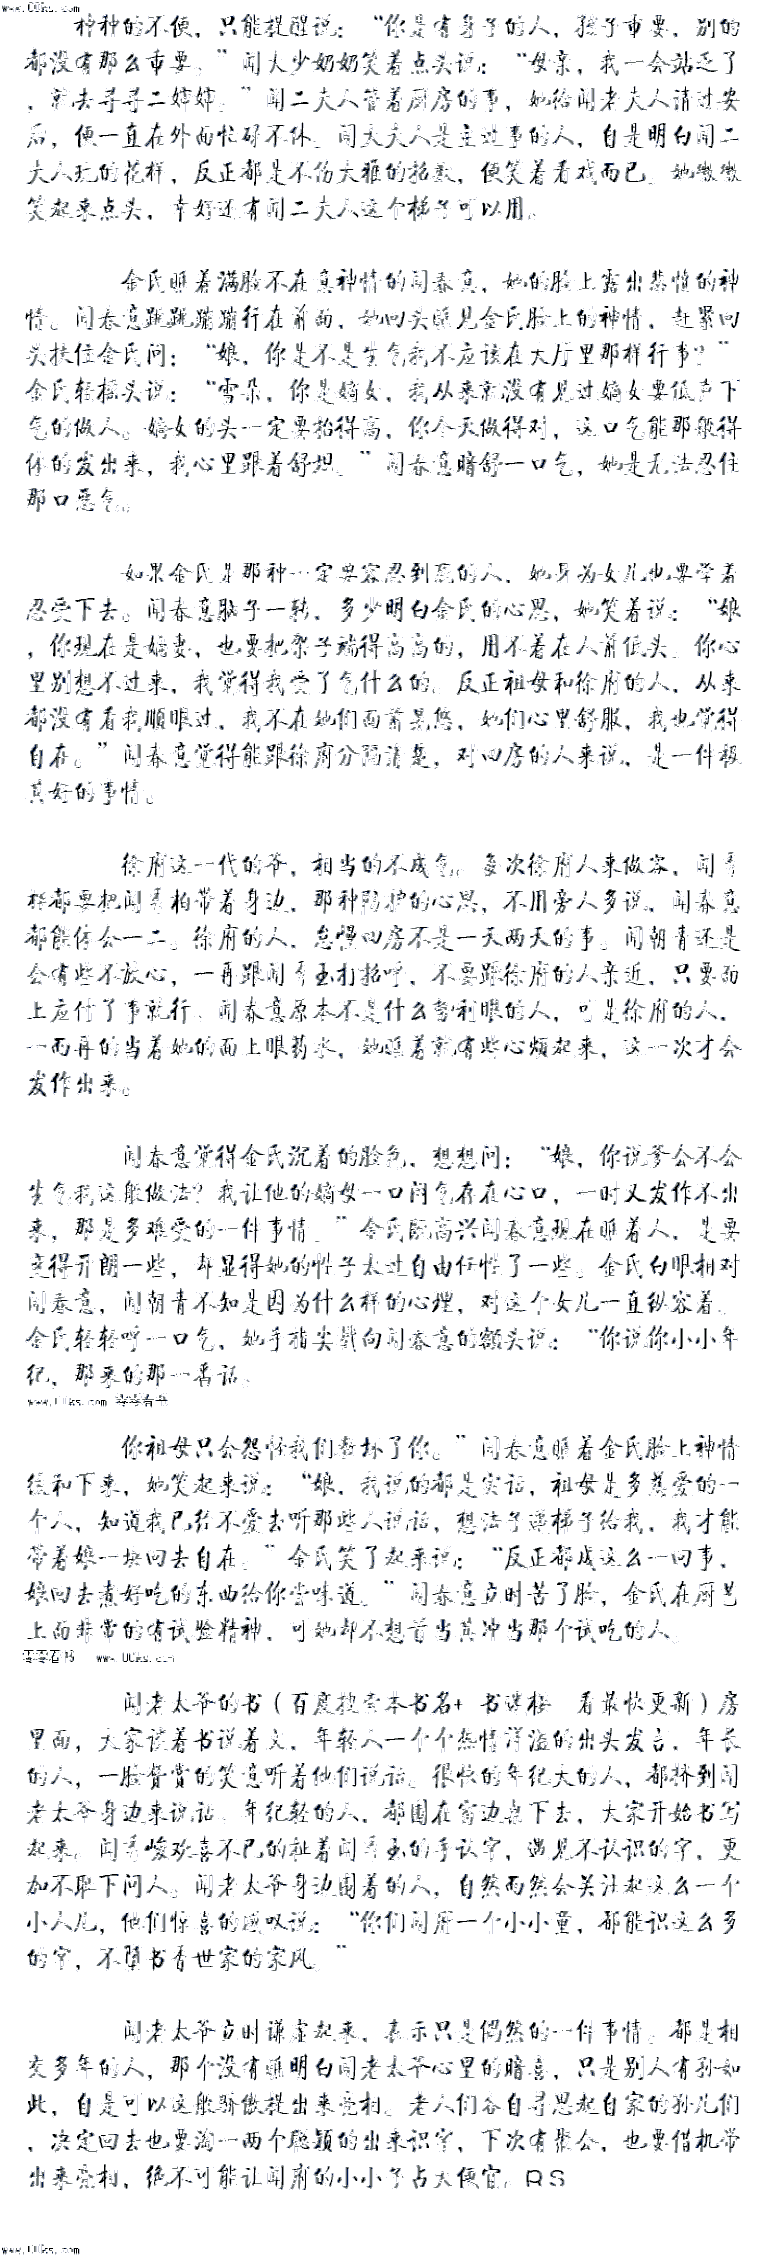 www.00ks.com
种种的不便，只能提醒说：“你是有身子的人，孩子重要，别的
都没有那么重要。”闻大少奶奶笑着点头说：“母亲，我一会站乏了
，就去寻寻二婶婶。”闻二夫人管着厨房的事，她给闻老夫人请过安
后，便一直在外面忙碌不休。闻大夫人是主过事的人，自是明白闻二
夫人玩的花样，反正都是不伤大雅的招数，便笑着看戏而已。她微微
笑起来点头，幸好还有闻二夫人这个梯子可以用。
金氏瞧着满脸不在意神情的闻春意，她的脸上露出悲愤的神
情。闻春意跳跳蹦蹦行在前面，她回头瞧见金氏脸上的神情，赶紧回
头挨位金氏问：“娘，你是不是生气我不应该在大厅里那样行事？”
金氏轻摇头说：“雪朵，你是嫡女，我从来就没有见过嫡女要低声下
气的做人。嫡女的头一定要抬得高，你今天做得对，这口气能那般得
体的发出来，我心里跟着舒坦。”闻春意暗舒一口气，她是无法忍住
那口恶气。
如果金氏是那种一定要容忍到底的人，她身为女儿也要学着
忍受下去。闻春意脑子一转，多少明白金氏的心思，她笑着说：“娘
，你现在是嫡妻，也要把架子端得高高的，用不着在人前低头。你心
里别想不过来，我觉得我受了气什么的。反正祖母和徐府的人，从来
都没有看我顺眼过，我不在她们面前晃悠，她们心里舒服，我也觉得
自在。”闻春意觉得能跟徐府分隔清楚，对四房的人来说，是一件极
其好的事情。
徐府这一代的爷，相当的不成气。多次徐府人来做客，闻哥
都要把闻哥柏带着身边，那种防护的心思，不用旁人多说，闻春意
都能体会一二。徐府的人，怠慢四房不是一天两天的事。闻朝青还是
会有些不放心，一再跟闻哥玉打招呼，不要跟徐府的人亲近，只要面
上应付了事就行。闻春意原本不是什么势利眼的人，可是徐府的人，
一而再的当着她的面上眼药水，她瞧着就有些心烦起来，这一次才会
发作出来。
闻春意觉得金氏沉着的脸色，想想问：“娘，你说爹会不会
生气我这般做法？我让他的嫡母一口闷气存在心口，一时又发作不出
来，那是多难受的一件事情。”金氏既高兴闻春意现在瞧着人，是要
变得开朗一些，却显得她的性子太过自由任性了一些。金氏白眼相对
闻春意，闻朝青不知是因为什么样的心理，对这个女儿一直纵容着。
金氏轻轻呼一口气，她手指尖戳向闻春意的额头说：“你说你小小年
纪，那来的那一番话。
www.00ks.com 零零看书
你祖母只会怨怪我们教坏了你。”闻春意瞧着金氏脸上神情
缓和下来，她笑起来说：“娘，我说的都是实话，祖母是多慈爱的一
个人，知道我已经不爱去听那些人说话，想法子递梯子给我，我才能
带着娘一块回去自在。”金氏笑了起来说：“反正都成这么一回事，
娘回去煮好吃的东西给你尝味道。”闻春意立时苦了脸，金氏在厨艺
上面非常的有试验精神，可她却不想首当其冲当那个试吃的人。
零零看书 www.00ks.com
闻老太爷的书（百度搜索本书名+ 书谜楼 看最快更新）房
里面，大家谈着书说着文，年轻人一个个热情洋溢的出头发言，年长
的人，一脸赞赏的笑意听着他们说话。很快的年纪大的人，都挤到闻
老太爷身边来说话。年纪轻的人，都围在窗边桌下去，大家开始书写
起来。闻哥峻欢喜不已的扯着闻哥玉的手认字，遇见不认识的字，更
加不耻下问人。闻老太爷身边围着的人，自然而然会关注起这么一个
小人儿，他们惊喜的感叹说：“你们闻府一个小小童，都能识这么多
的字，不堕书香世家的家风。”
闻老太爷立时谦虚起来，表示只是偶然的一件事情。都是相
交多年的人，那个没有瞧明白闻老太爷心里的暗喜，只是别人有孙如
此，自是可以这般骄傲提出来亮相。老人们各自寻思起自家的孙儿们
，决定回去也要淘一两个聪颖的出来识字，下次有聚会，也要借机带
出来亮相，绝不可能让闻府的小小子占大便宜。RS
www.00ks.com